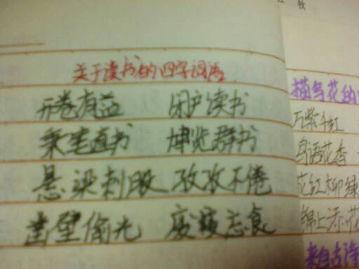 关于读书的四字词语
开卷有益 闭户读书
秉笔直书 博览群书
悬梁刺股 孜孜不倦
凿壁偷光 废寝忘食
描写花的
万紫千红
鸟语花香
花红柳绿
锦上添花
来自古诗